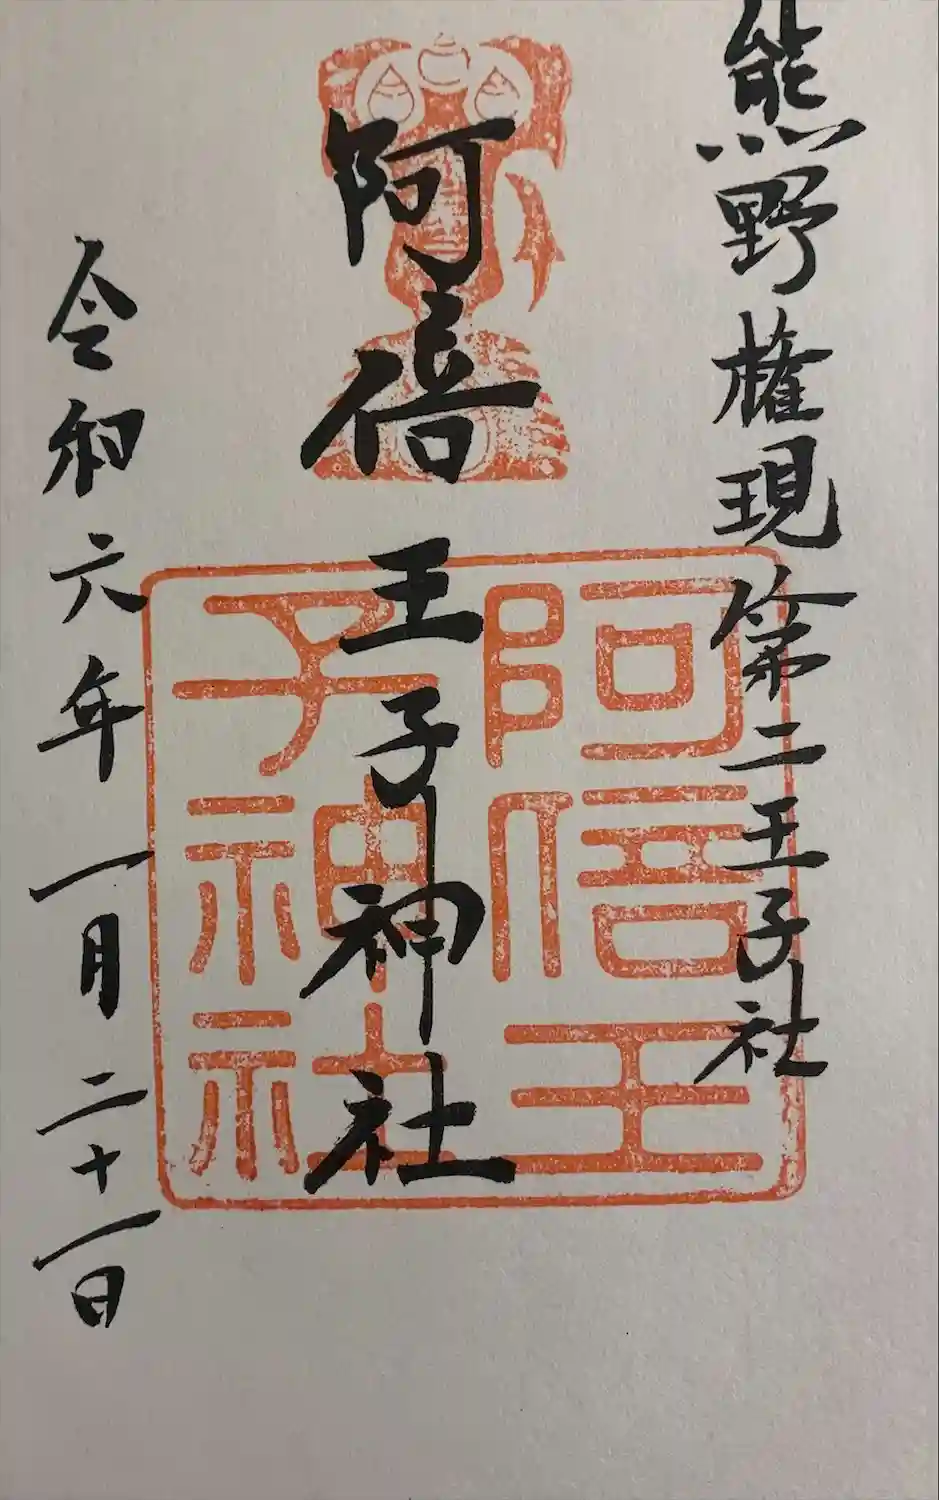 熊野権現第二王子社
阿倍王子神社
阿倍王
子神社
令和六年一月二十一日